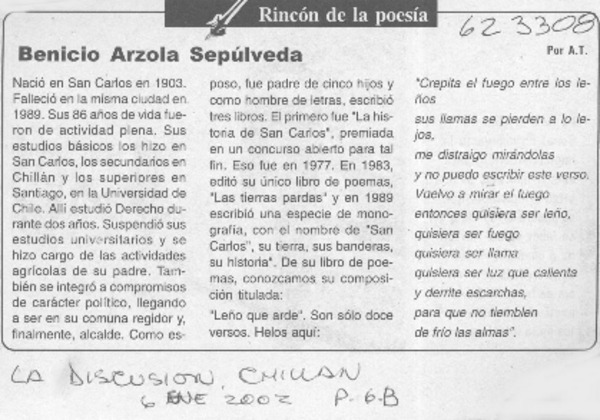 Rincón de la poesía
623308
Benicio Arzola Sepúlveda
Por A.T.
Nació en San Carlos en 1903.
Falleció en la misma ciudad en
1989. Sus 86 años de vida fue-
ron de actividad plena. Sus
estudios básicos los hizo en
San Carlos, los secundarios en
Chillán y los superiores en
Santiago, en la Universidad de
Chile. Allí estudió Derecho du-
rante dos años. Suspendió sus
estudios universitarios y se
hizo cargo de las actividades
agrícolas de su padre. Tam-
bién se integró a compromisos
de carácter político, llegando
a ser en su comuna regidor y,
finalmente, alcalde. Como es-
poso, fue padre de cinco hijos y
como hombre de letras, escribió
tres libros. El primero fue "La his-
toria de San Carlos", premiada
en un concurso abierto para tal
fin. Eso fue en 1977. En 1983,
editó su único libro de poemas,
"Las tierras pardas" y en 1989
escribió una especie de mono-
grafía, con el nombre de "San
Carlos", su tierra, sus banderas,
su historia". De su libro de poe-
mas, conozcamos su composi-
ción titulada:
"Leño que arde". Son sólo doce
versos. Helos aquí:
"Crepita el fuego entre los le-
ños
sus llamas se pierden a lo le-
jos,
me distraigo mirándolas
y no puedo escribir este verso.
Vuelvo a mirar el fuego
entonces quisiera ser leño,
quisiera ser fuego
quisiera ser llama
quisiera ser luz que calienta
y derrite escarchas,
para que no tiemblen
de frío las almas".
LA DISCUSION, CHILLAN
6 ENE 2002 P. 6.B